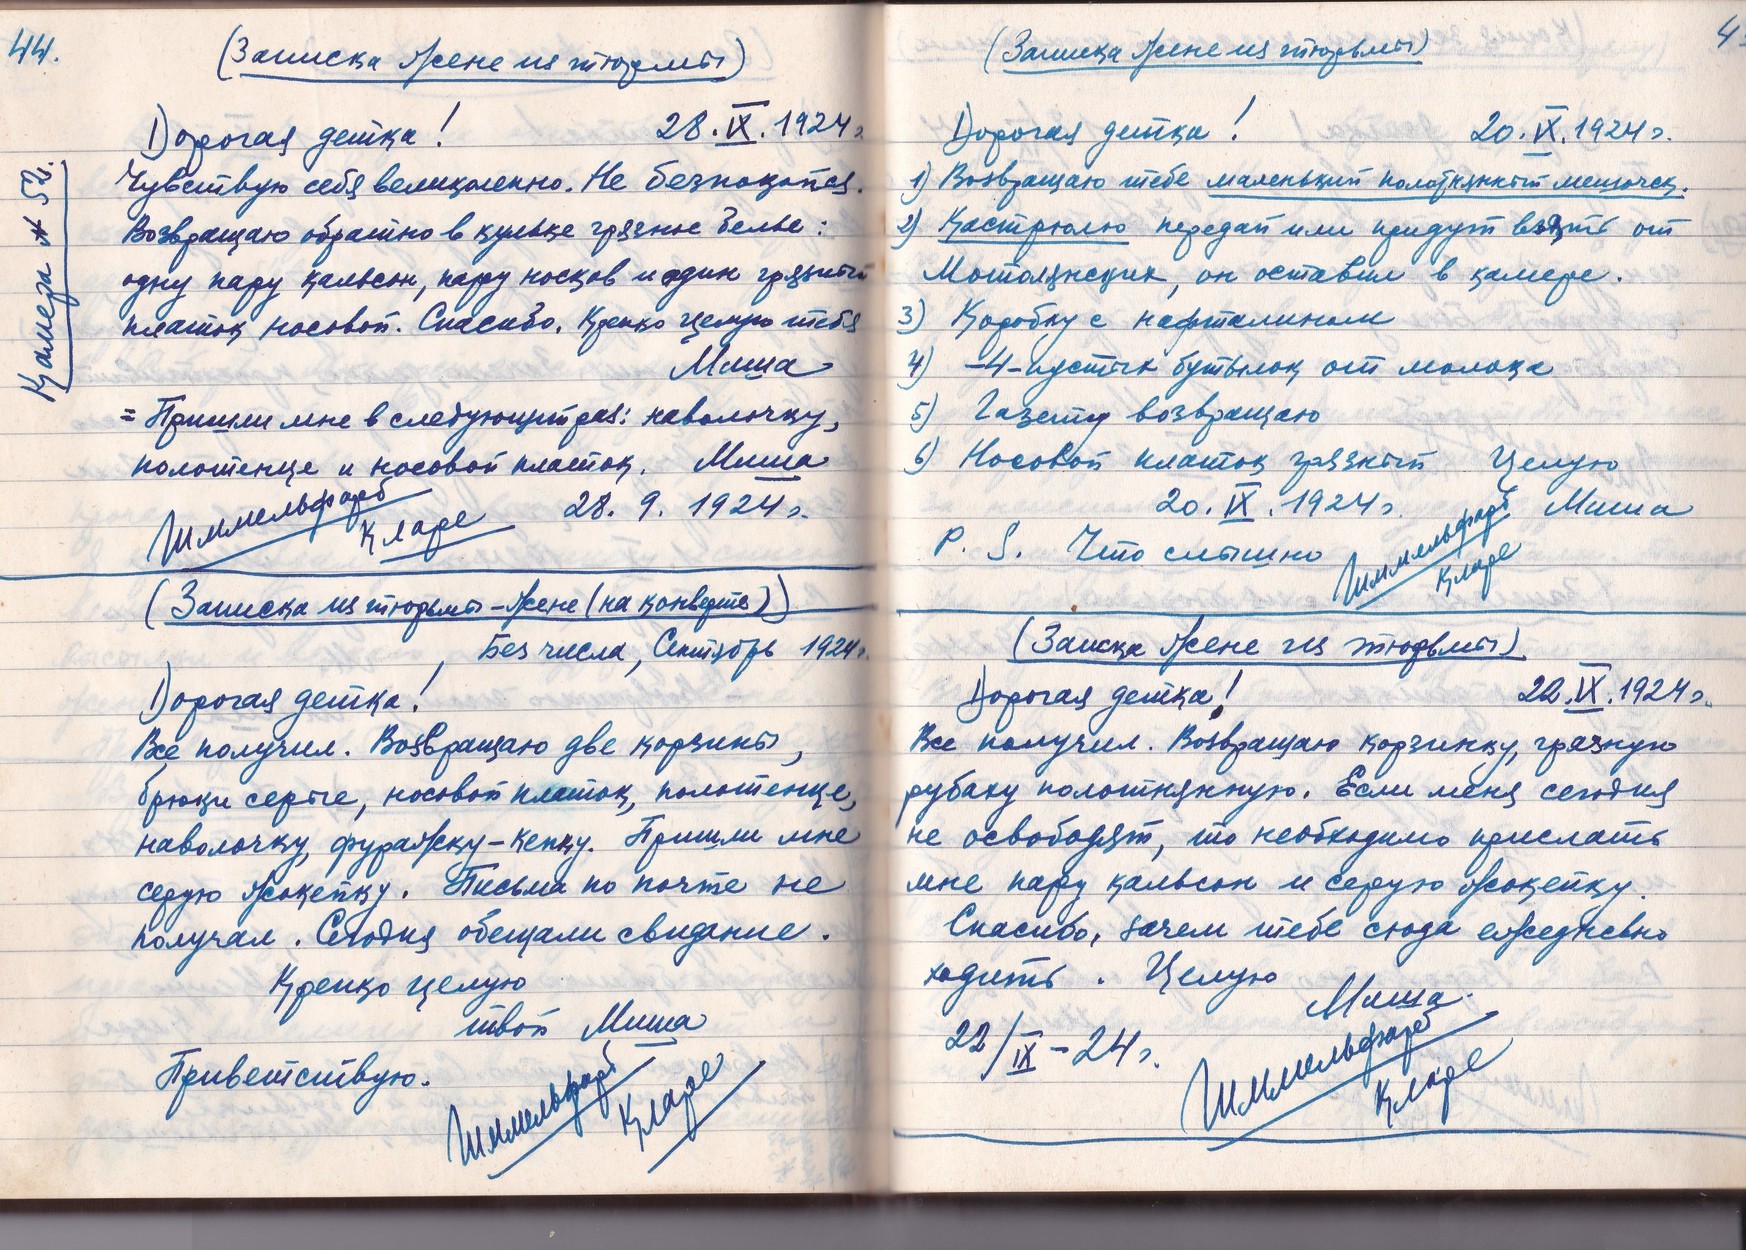 44.
(Записка жене из тюрьмы)
Дорогая детка! 28.IX.1924г.
Камера № 52.
Чувствую себя великолепно. Не безпокойся.
Возвращаю обратно в кульке грязное белье:
одну пару кальсон, пару носков и один грязный
платок носовой. Спасибо. Крепко целую тебя
Миша
= Пришли мне в следующий раз: наволочку,
полотенце и носовой платок. Миша
28. 9. 1924г.
Шиммельфарб
Кларе
(Записка из тюрьмы-жене (на конверте))
Без числа, Сентябрь 1924г.
Дорогая детка!
Все получил. Возвращаю две корзины,
брюки серые, носовой платок, полотенце,
наволочку, фуражку-кепку. Пришли мне
серую жокейку. Письма по почте не
получал. Сегодня обещали свидание.
Крепко целую
твой Миша
Приветствую.
Шиммельфарб
Кларе
(Записка жене из тюрьмы)
Дорогая детка! 20.IX.1924г.
1) Возвращаю тебе маленький полотняный мешочек.
2) Кастрюлю передай или придут взять от
Мотолянских, он оставил в камере.
3) Коробку с нафталином
4) -4- пустых бутылок от молока
5) Газету возвращаю
6) Носовой платок грязный Целую
20.IX.1924г. Миша
P. S. Что слышно
Шиммельфарб
Кларе
(Записка жене из тюрьмы)
Дорогая детка! 22.IX.1924г.
Все получил. Возвращаю корзинку, грязную
рубаху полотняную. Если меня сегодня
не освободят, то необходимо прислать
мне пару кальсон и серую жокейку.
Спасибо, зачем тебе сюда ежедневно
ходить. Целую
Миша.
22/IX-24г.
Шиммельфарб
Кларе